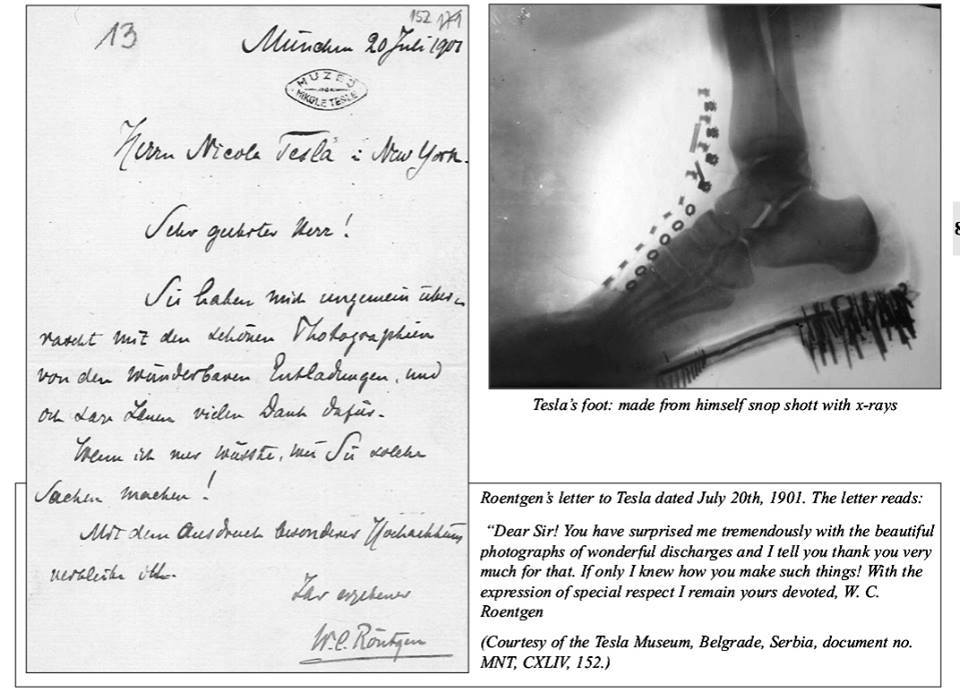 13
152 179
München 20 Juli 1901
MUZEJ
NIKOLE TESLE
Herrn Nicola Tesla i New York.
Sehr geehrter Herr!
Sie haben mich ungemein über-
rascht mit den schönen Photographien
von den wunderbaren Entladungen, und
ich sage Ihnen vielen Dank dafür.
Wenn ich nur wüsste, wie Sie solche
Sachen machen!
Mit dem Ausdruck besonderer Hochachtung
verbleibe ich
Ihr ergebener
W. C. Röntgen
Tesla's foot: made from himself snop shott with x-rays
Roentgen's letter to Tesla dated July 20th, 1901. The letter reads:
"Dear Sir! You have surprised me tremendously with the beautiful
photographs of wonderful discharges and I tell you thank you very
much for that. If only I knew how you make such things! With the
expression of special respect I remain yours devoted, W. C.
Roentgen
(Courtesy of the Tesla Museum, Belgrade, Serbia, document no.
MNT, CXLIV, 152.)